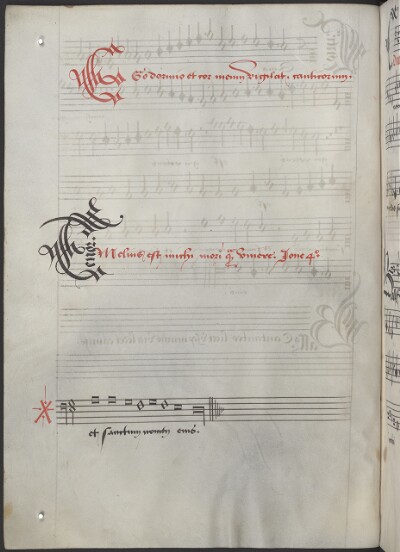 Ego dormio et cor meum vigilat. canticorum.
Tenor.
Melius est michi mori q̃ vivere. Jone 4º.
et sanctum nomen eius.